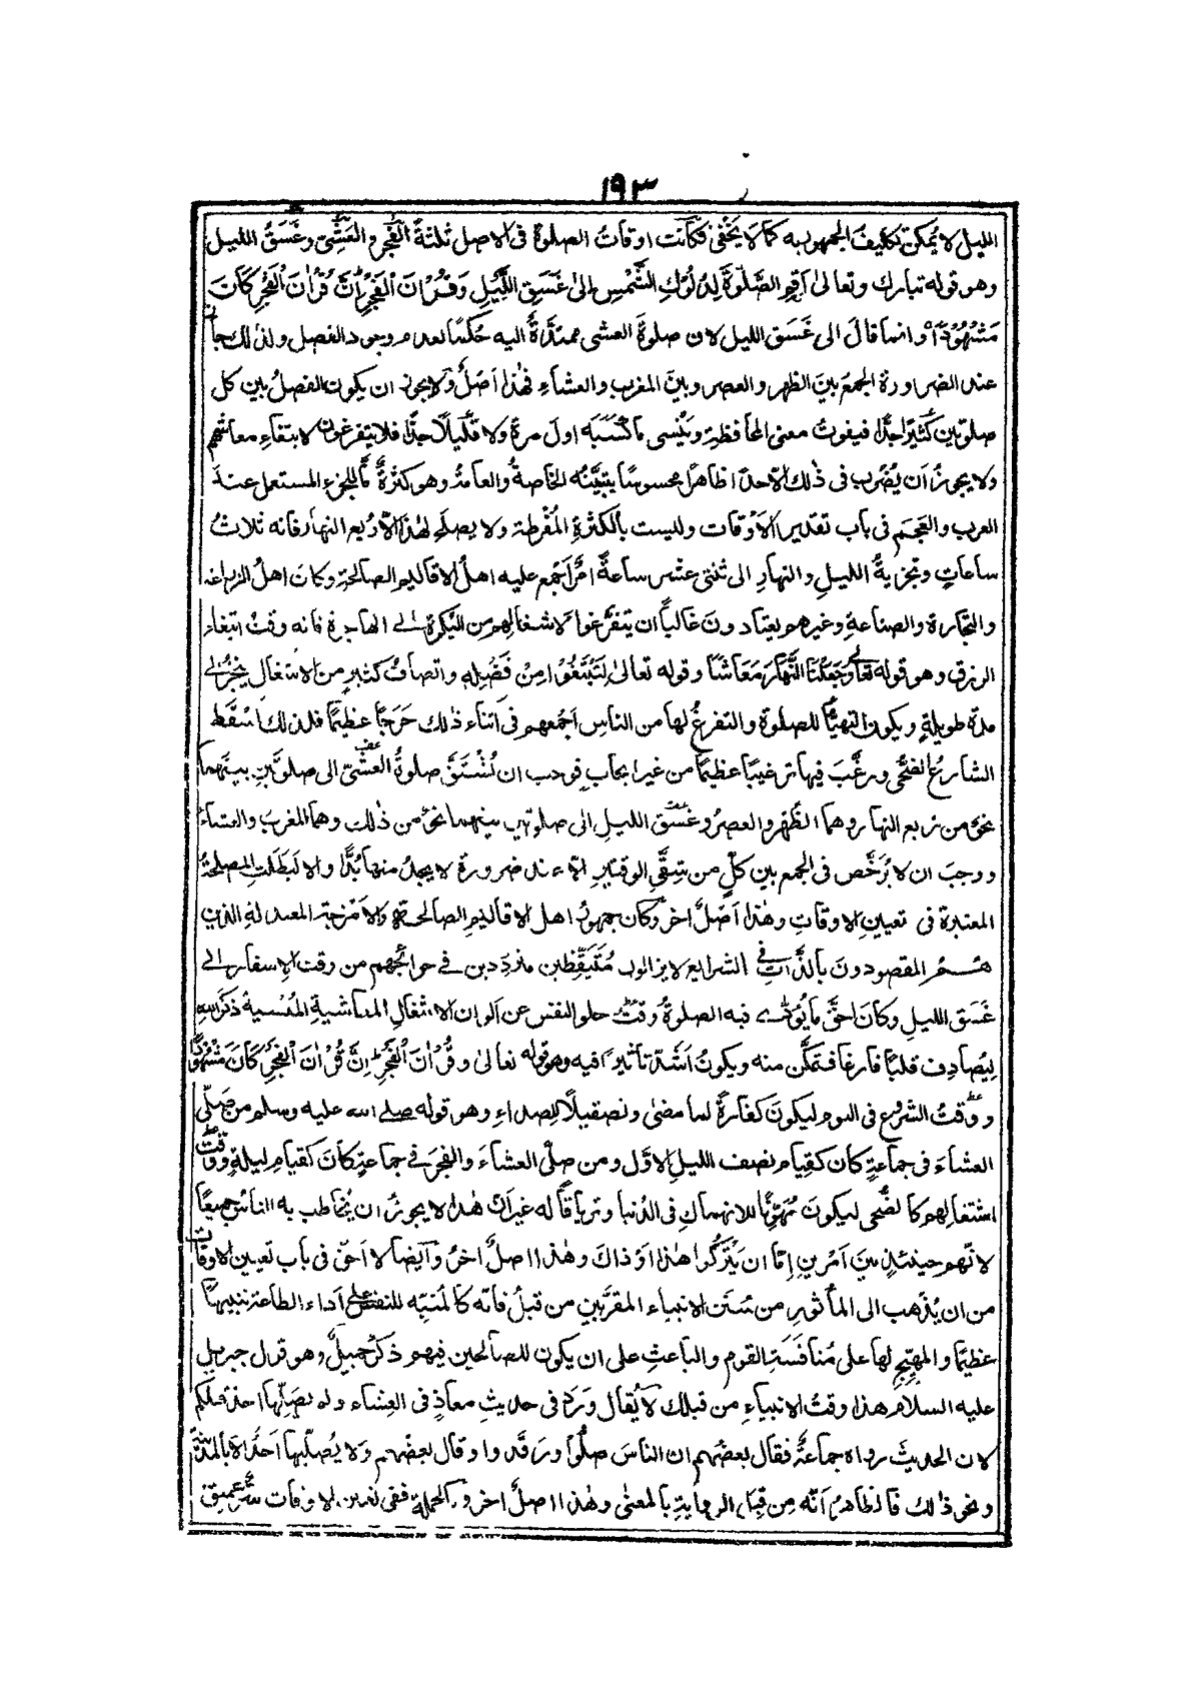 ١٩٣
الليل لا يُمكن تكليفُ الجمهور به كما لا يَخْفٰى فكانت اوقاتُ الصلوٰة فى الاصل ثلثةً الفجر والعَشِىّ وغَسَقُ الليل
وهو قوله تبارك وتعالىٰ اَقِمِ الصَّلٰوةَ لِدُلُوْكِ الشَّمْسِ اِلىٰ غَسَقِ اللَّيْلِ وَقُرْاٰنَ الْفَجْرِ اِنَّ قُرْاٰنَ الْفَجْرِ كَانَ
مَشْهُوْدًا وانما قالَ الى غَسَقِ الليل لان صلوٰةَ العشى ممتدَّةٌ اليه حُكمًا لعدم وجود الفصل ولذلك جاز
عند الضرورة الجمعُ بينَ الظهر والعصر وبينَ المغرب والعشاءِ فهٰذا اَصلٌ ولا يجوز ان يكون الفصلُ بين كل
صلوتين كثيرًا جدًّا فيفوتُ معنى المحافظةِ ويُنْسى ما كَسَبَه اولَ مرة ولا قليلًا جدًّا فلا يتفرغون لابتغاءِ معاشهم
ولا يجوزُ اَن يُضْرب فى ذٰلك الّا حدًّا ظاهرًا محسوسًا يتبيَّنُه الخاصةُ والعامةُ وهو كثرةٌ ما للجزء المستعمل عندَ
العرب والعَجَم فى باب تقدير الاَوْقات وليست بالكثرةِ المُفْرِطة ولا يصلح لهٰذا الّا رُبع النهار فانه ثلاثُ
ساعاتٍ وتجزيةُ الليلِ والنهارِ الى ثنتى عشر ساعةً امرٌ اَجْمع عليه اهلُ الاقاليم الصالحةِ وكانَ اهلُ الزراعة
والتجارة والصناعةِ وغيرهم يعتادونَ غالبًا ان يتفرَّغوا لاشغالهم من البُكرة الى الهاجرة فانه وقتُ ابتغاء
الرزق وهو قوله تعالى وجَعَلْنَا النَّهَارَ مَعَاشًا وقوله تعالىٰ لِتَبْتَغُوْا مِنْ فَضْلِهٖ واتصافُ كثيرٍ من الاشغال ينجرُّ الى
مدة طويلةٍ ويكون التهيُّأ للصلوة والتفرغُ لها من الناس اجمعهم فى اثناء ذٰلك حَرَجًا عظيمًا فلذلك اَسْقَط
الشارعُ الضحى ورغَّبَ فيها ترغيبًا عظيمًا من غير ايجابٍ فوجب ان تُشْتَقَّ صلوةُ العَشِىّ الى صلوتَينِ بينهما
نحوٌ من ربع النهار وهما الظهر والعصرُ وغَسَق الليلِ الى صلوتين بينهما نحوٌ من ذٰلك وهما المغربُ والعشاءُ
ووجبَ ان لا يُرَخَّص فى الجمع بين كلٍّ من شِقَّىِ الوقتينِ الّا عند ضرورة لا يجدُ منها بُدًّا والا لبَطَلَت المصلحةُ
المعتبرة فى تعيينِ الاوقاتِ وهٰذا اَصْلٌ اٰخر وكان جمهورُ اهل الاقاليم الصالحة والاَمْزِجة المعتدلة الذين
هُمُ المقصودونَ بالذَّات فى الشرايع لايزالون مُتَيَقِّظين متردّدين فى حوائجهم من وقت الاِسفار الى
غَسَق الليلِ وكان احقَّ ما يُؤدّٰى فيه الصلوةُ وقتُ خلو النفس عن اَلوان الاشغالِ المعاشيةِ المُنْسيةِ ذكرَ اللّٰهِ
لِيُصادِف قلبًا فارغًا فتمكَّن منه ويكونُ اَشدَّ تأثيرًا فيه وهو قوله تعالىٰ وقُرْاٰنَ الْفَجْرِ اِنَّ قُرْاٰنَ الْفَجْرِ كَانَ مَشْهُوْدًا
ووقتُ الشروع فى النوم ليكونَ كفارةً لما مضىٰ وتصقيلًا للصداءِ وهو قوله صلے الله عليه وسلم من صَلّى
العشاءَ فى جماعةٍ كان كقيام نصف الليلِ الاوَّل ومن صلّى العشاءَ والفجرَ فى جماعةٍ كانَ كقيامِ ليلةٍ ووقتُ
اشتغالهم كالضُّحى ليكونَ مُهَوِّنًا للانهماكِ فى الدُّنيا وترياقًا له غير اَنّ هٰذا لا يجوزُ ان يُخاطب به الناسُ جميعًا
لانّهم حينئذٍ بينَ اَمْرينِ اِمّا ان يَتْرُكُوا هٰذا اَوْ ذاكَ وهٰذا اصلٌ اٰخرُ وايضا لا اَحَقَّ فى باب تعيين الاوقات
من ان يُذْهب الى المأثورِ من سُنَن الانبياء المقرَّبين من قبلُ فانّه كالمُنَبِّه للنفس على اَداء الطاعة تنبيهًا
عظيمًا والمهيِّجِ لها على مُنافَسَةِ القوم والباعثِ على ان يكون للصالحين فيهم ذكرٌ جميلٌ وهو قول جبريل
عليه السلام هٰذا وقتُ الانبياءِ من قبلك لا يُقال وَرَدَ فى حديثِ معاذٍ فى العِشاء ولم يُصَلِّها احدٌ قبلكم
لان الحديثَ رواه جماعةٌ فقال بعضُهم ان الناسَ صلُّوا ورَقَدوا وقال بعضُهم وَلا يُصلّيها اَحدٌ الّا بالمدينة
ونحو ذالك فالظاهرُ اَنَّه مِن قِبَل الروايةِ بالمعنٰى وهٰذا اصلٌ اٰخر وبالجملة ففى تعيين الاوقات سِرٌّ عميق